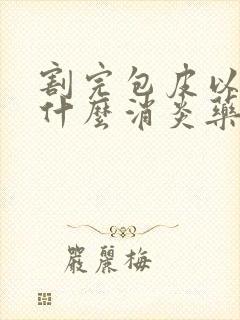 割完包皮以
什麼消炎藥
嚴麗梅